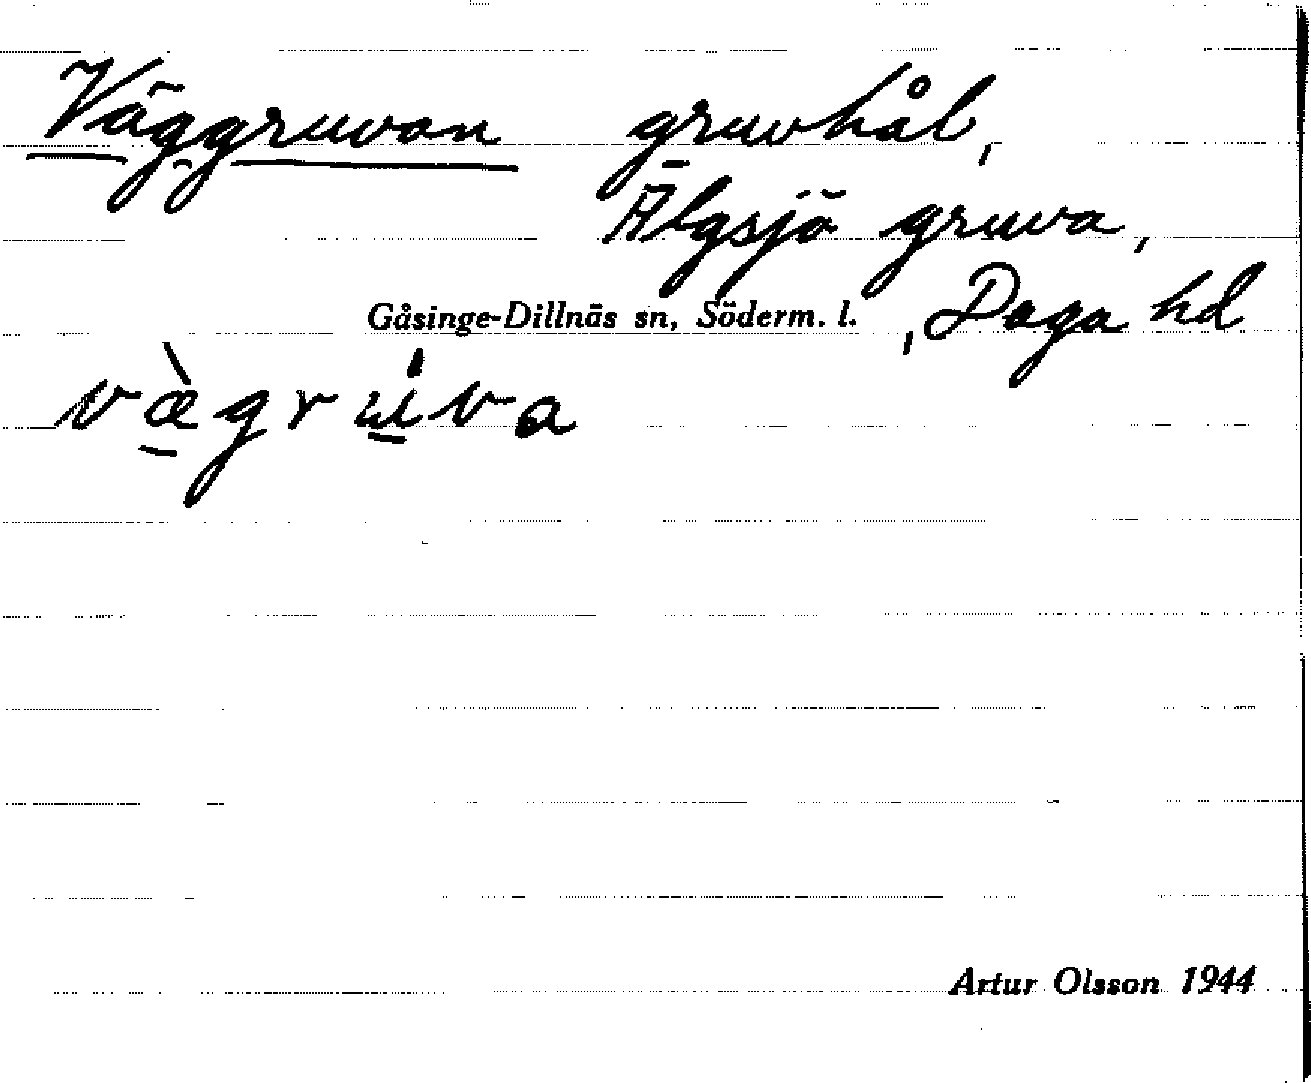 Väggruvan gruvhål,
Älgsjö gruva,
Gåsinge-Dillnäs sn, Söderm. l. , Daga hd
væ̀gru̇va
Artur Olsson 1944